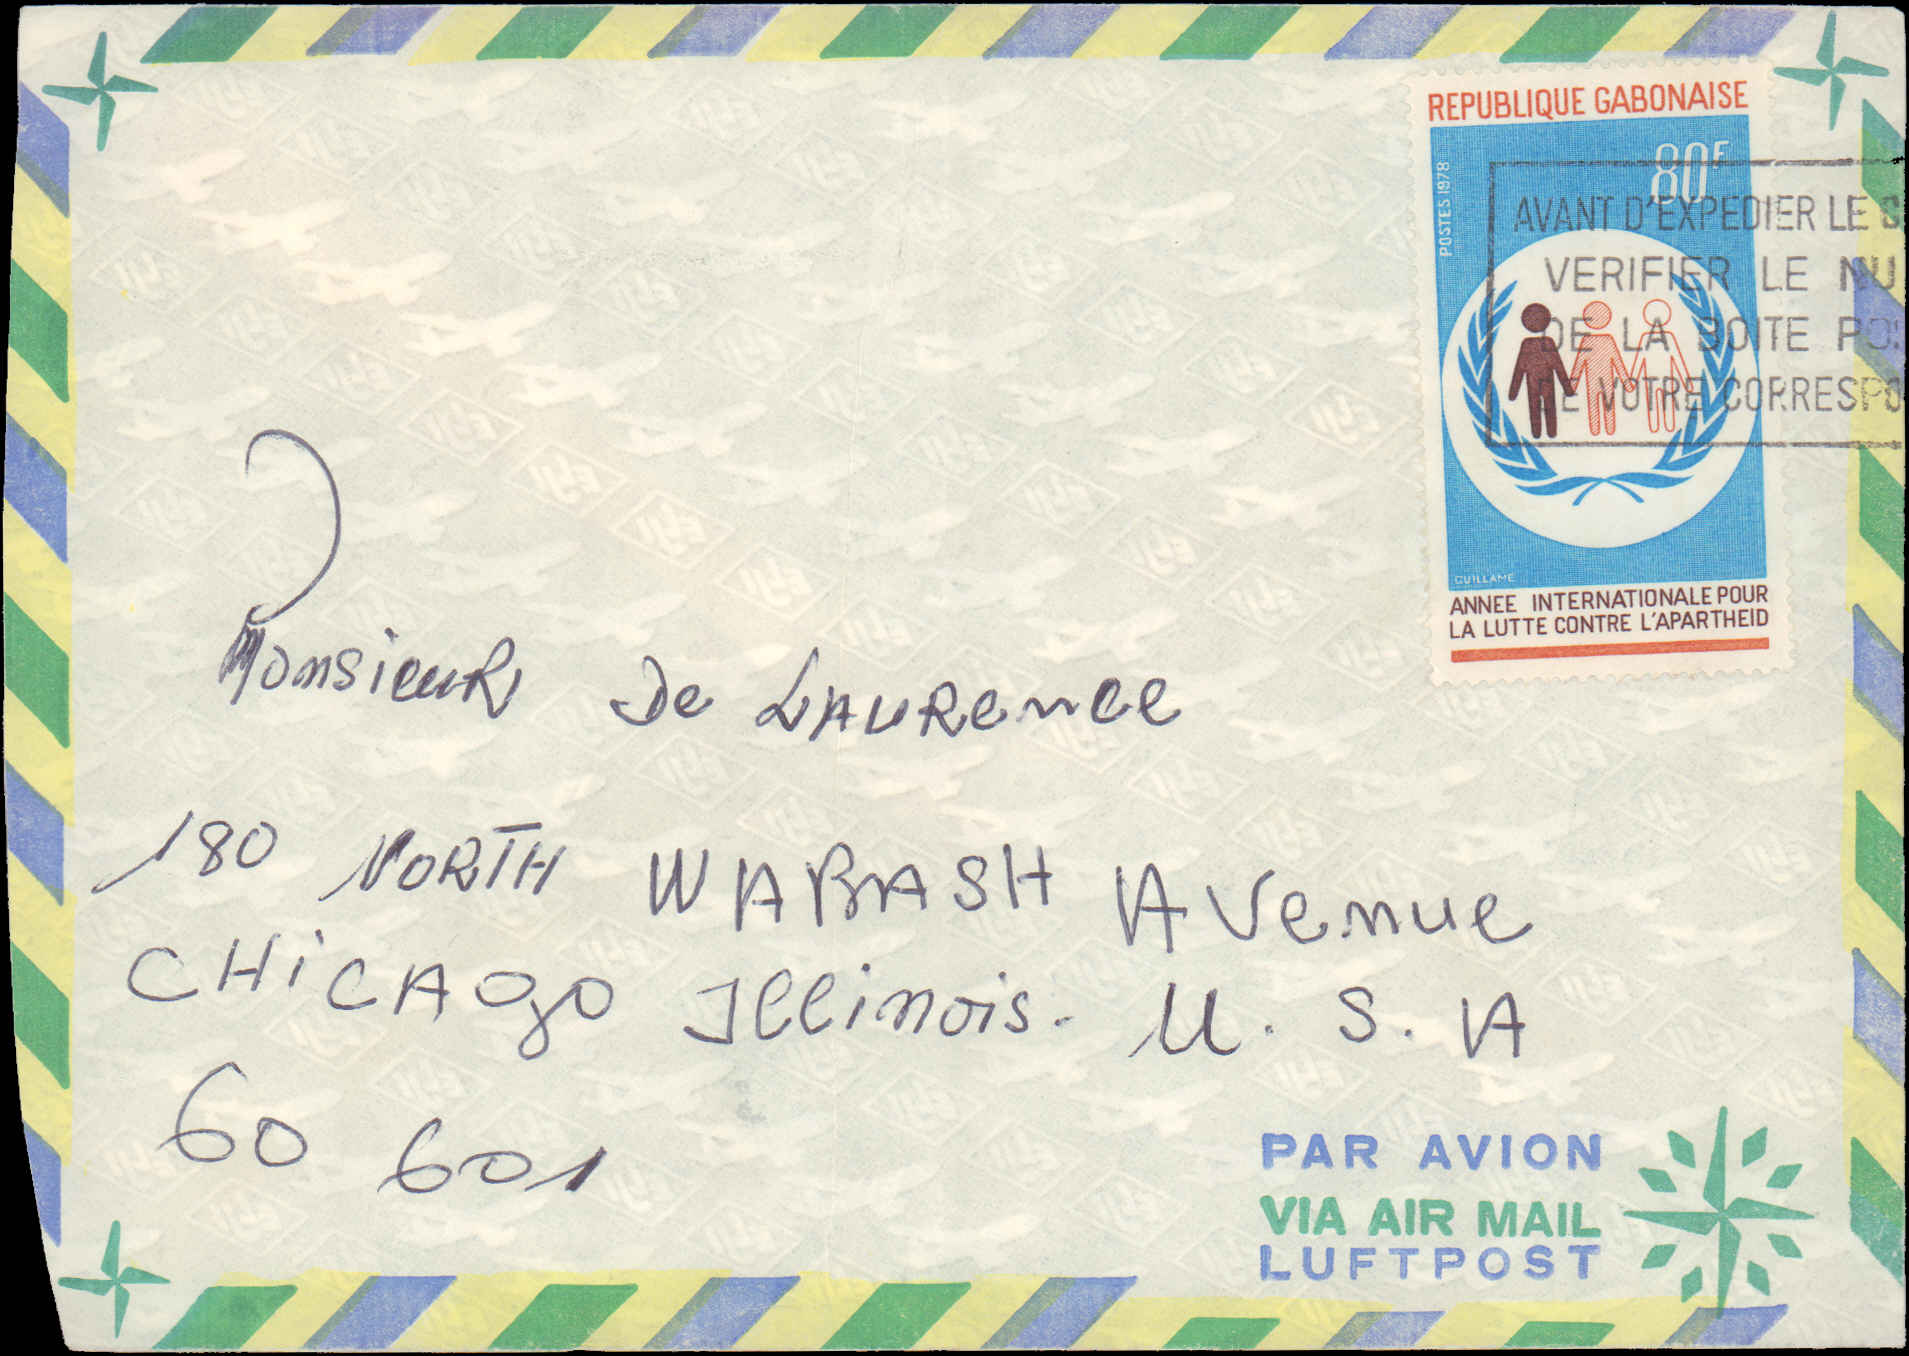 REPUBLIQUE GABONAISE
80F
POSTES 1978
AVANT D'EXPEDIER LE
VERIFIER LE NU
DE LA BOITE POS
DE VOTRE CORRESPO
GUILLAME
ANNEE INTERNATIONALE POUR
LA LUTTE CONTRE L'APARTHEID
Monsieur De Laurence
180 NORTH WABASH AVenue
CHiCAgo Illinois. U. S. A
60 601
PAR AVION
VIA AIR MAIL
LUFTPOST